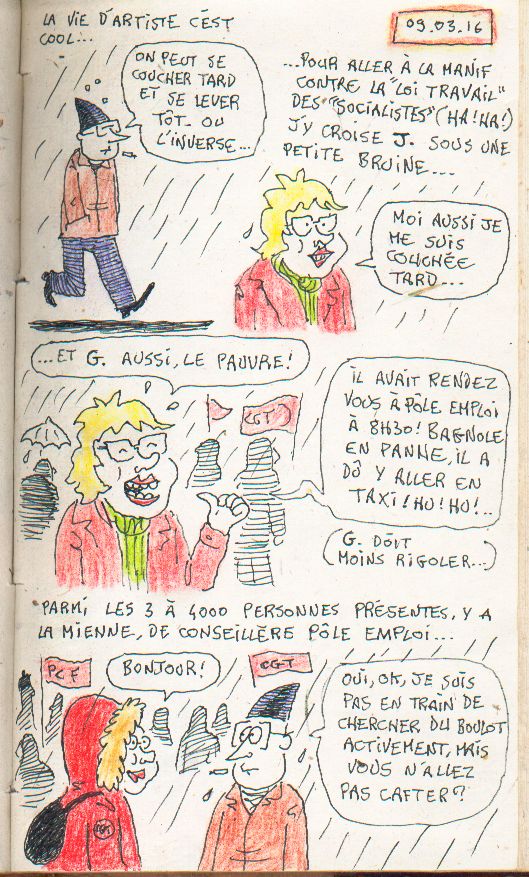 LA VIE D'ARTISTE C'EST
COOL...
09.03.16
ON PEUT SE
COUCHER TARD
ET SE LEVER
TÔT. OU
L'INVERSE...
...POUR ALLER À LA MANIF
CONTRE LA "LOI TRAVAIL"
DES "SOCIALISTES" (HA! HA!)
J'Y CROISE J. SOUS UNE
PETITE BRUINE...
MOI AUSSI JE
ME SUIS
COUCHÉE
TARD...
...ET G. AUSSI, LE PAUVRE!
CGT
IL AVAIT RENDEZ
VOUS À PÔLE EMPLOI
À 8H30! BAGNOLE
EN PANNE, IL A
DÛ Y ALLER EN
TAXI! HU! HU!..
(G. DOIT
MOINS RIGOLER...)
PARMI LES 3 À 4000 PERSONNES PRÉSENTES, Y A
LA MIENNE, DE CONSEILLÈRE PÔLE EMPLOI...
PCF
BONJOUR!
CGT
OUI, OK, JE SUIS
PAS EN TRAIN DE
CHERCHER DU BOULOT
ACTIVEMENT, MAIS
VOUS N'ALLEZ
PAS CAFTER?